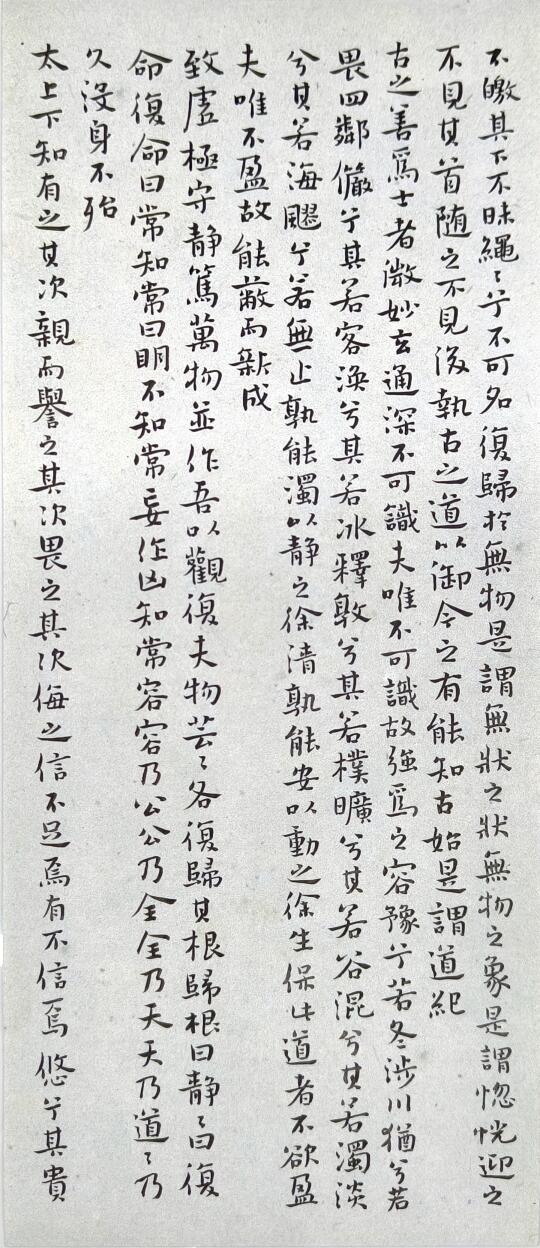 不皦其下不昧繩〻兮不可名復歸於無物是謂無狀之狀無物之象是謂惚恍迎之
不見其首随之不見後執古之道以御今之有能知古始是謂道紀
古之善爲士者微妙玄通深不可識夫唯不可識故强爲之容豫兮若冬涉川猶兮若
畏四鄰儼兮其若客渙兮其若冰釋敦兮其若樸曠兮其若谷混兮其若濁淡
兮其若海飂兮若無止孰能濁以静之徐清孰能安以動之徐生保此道者不欲盈
夫唯不盈故能蔽而新成
致虛極守静篤萬物並作吾以觀復夫物芸〻各復歸其根歸根曰静〻曰復
命復命曰常知常曰明不知常妄作凶知常容容乃公公乃全全乃天天乃道〻乃
久没身不殆
太上下知有之其次親而譽之其次畏之其次侮之信不足焉有不信焉悠兮其貴